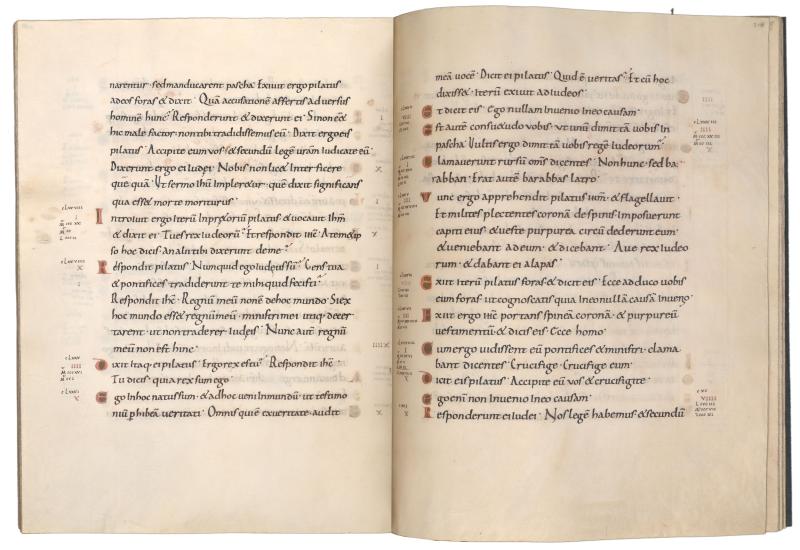 narentur · sed manducarent pascha · Exiuit ergo pilatus
ad eos foras & dixit · Quā accusationē affertis aduersus
hominē hunc · Responderunt & dixerunt ei · Si non eēt
hic malefactor · non tibi tradidissemus eū · Dixit ergo eis
pilatus · Accipite eum uos · & secundū legē urām iudicate eū ·
Dixerunt ergo ei iudei · Nobis non lic& interficere
quēquā · Ut sermo ihū impler&ur · quē dixit significans
qua ess& morte moriturus ·
Introiuit ergo iterū In pr&oriū pilatus & uocauit ihm̄
& dixit ei · Tu es rex iudeorū · Et respondit ihc̄ · A tem&ip
so hoc dicis · an alii tibi dixerunt de me ·
Respondit pilatus · Numquid ego iudeus sū · Gens tua
& pontifices tradiderunt te mihi · quid fecisti ·
Respondit ihc̄ · Regnū meū non ē de hoc mundo · Si ex
hoc mundo ess& regnū meū · ministri mei utiq; decer
tarent · ut non traderer iudeis · Nunc autē regnū
meū non est hinc ·
Dixit itaq; ei pilatus · Ergo rex es tu · Respondit ihc̄ ·
Tu dicis · quia rex sum ego ·
Ego In hoc natus sum · & ad hoc ueni In mundū · ut testimo
niū phibeā ueritati · Omnis qui ē ex ueritate · audit
meā uocē · Dicit ei pilatus · Quid ē ueritas · Et cū hoc
dixiss& · Iterū exiuit ad iudeos ·
Et dicit eis · Ego nullam Inuenio In eo causam ·
Est autē consu&udo uobis · ut unū dimittā uobis In
pascha · Uultis ergo dimittā uobis regē iudeorum ·
Clamauerunt rursū om̄s dicentes · Non hunc · sed ba
rabban · Erat autē barabbas latro ·
Tunc ergo apprehendit pilatus ihm̄ · & flagellauit ·
Et milites plectentes coronā de spinis · Imposuerunt
capiti eius · & ueste purpurea circūdederunt eum ·
& ueniebant ad eum · & dicebant · Aue rex iudeo
rum · & dabant ei alapas ·
Exiit Iterū pilatus foras & dicit eis · Ecce adduco uobis
eum foras · ut cognoscatis quia In eo nullā causā Inuenio ·
Exiit ergo ihc̄ portans spineā coronā · & purpureū
uestimentū & dicit eis · Ecce homo ·
Cum ergo uidissent eū pontifices & ministri · clama
bant dicentes · Crucifige · Crucifige eum ·
Dicit eis pilatus · Accipite eū uos & crucifigite ·
Ego eni non Inuenio In eo causam ·
Responderunt ei iudei · Nos legē habemus · & secundū